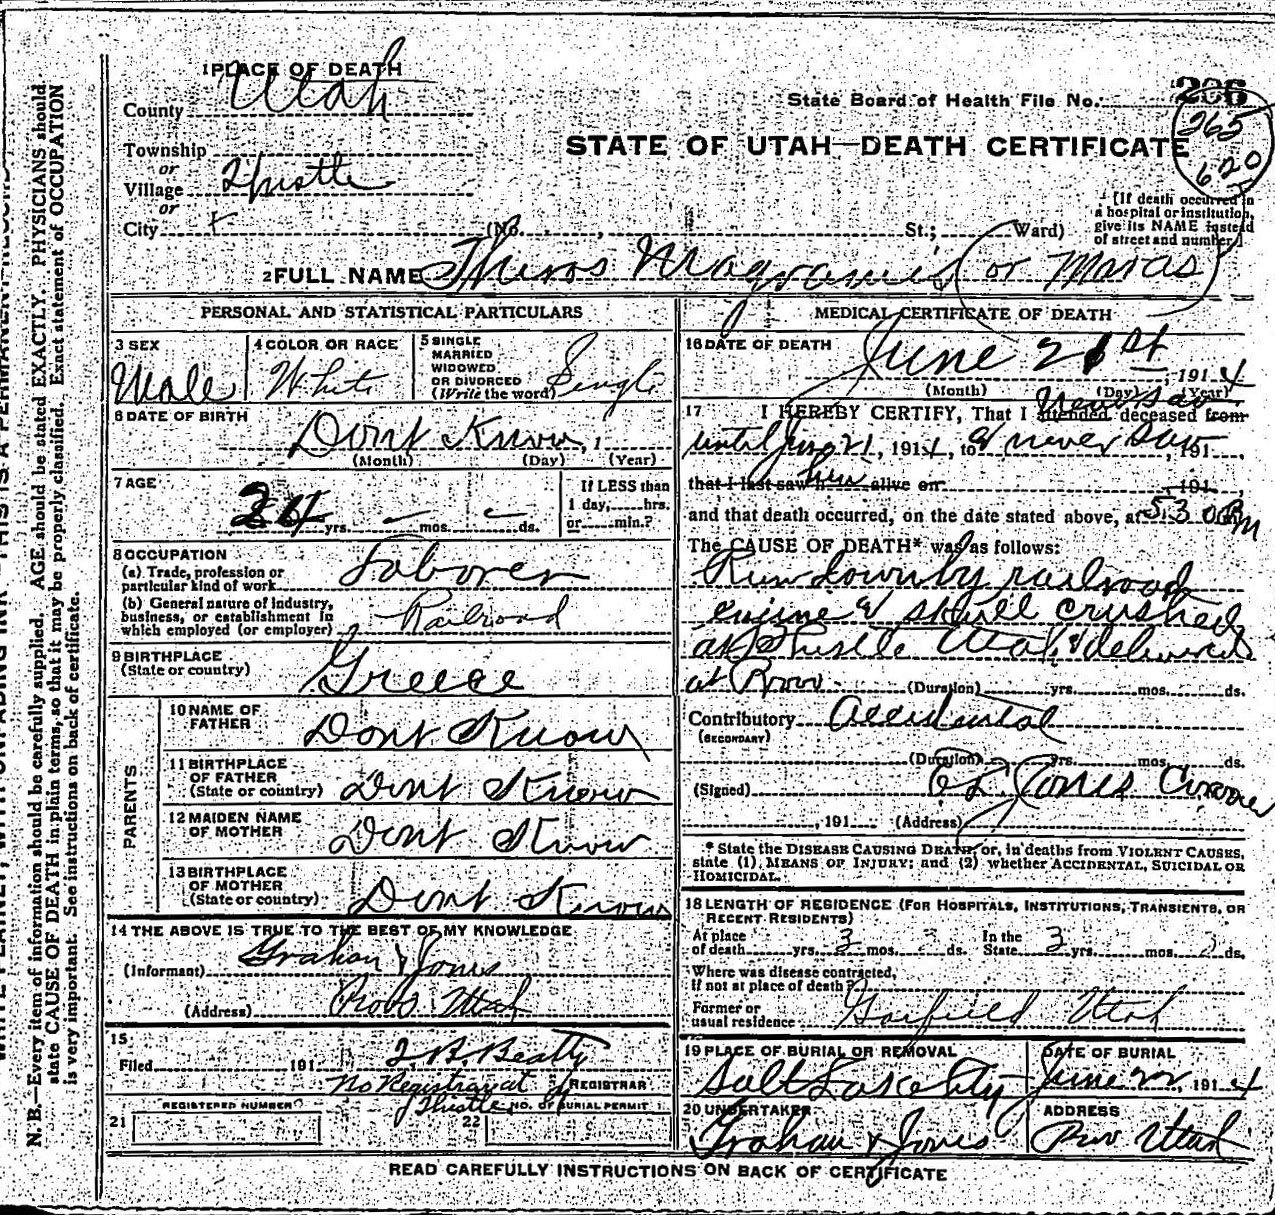 1 PLACE OF DEATH
County Utah
Township
or
Village Thistle
or
City
(No. St.; Ward)
State Board of Health File No. 206
265
620
STATE OF UTAH—DEATH CERTIFICATE
[If death occurred in
a hospital or institution,
give its NAME instead
of street and number.]
2 FULL NAME (or Maras)
PERSONAL AND STATISTICAL PARTICULARS
3 SEX
Male
4 COLOR OR RACE
White
5 SINGLE
MARRIED
WIDOWED
OR DIVORCED
(Write the word)
Single
6 DATE OF BIRTH
Dont Know, 1
(Month) (Day) (Year)
7 AGE
yrs. — mos. — ds.
If LESS than
1 day, hrs.
or min.?
8 OCCUPATION
(a) Trade, profession or
particular kind of work Laborer
(b) General nature of industry,
business, or establishment in
which employed (or employer) Railroad
9 BIRTHPLACE
(State or country) Greece
PARENTS
10 NAME OF
FATHER Dont Know
11 BIRTHPLACE
OF FATHER
(State or country) Dont Know
12 MAIDEN NAME
OF MOTHER Dont Know
13 BIRTHPLACE
OF MOTHER
(State or country) Dont Know
14 THE ABOVE IS TRUE TO THE BEST OF MY KNOWLEDGE
(Informant) Graham & Jones
(Address) Provo Utah
15
Filed 191
J. B. Beatty
No Registrar at
Thistle
REGISTRAR
REGISTERED NUMBER
21
NO. OF BURIAL PERMIT
22
MEDICAL CERTIFICATE OF DEATH
16 DATE OF DEATH
June 21st, 1914
(Month) (Day) (Year)
17 I HEREBY CERTIFY, That I attended never saw deceased from
until June 21, 1914, to & never saw, 191
that I last saw h alive on 191
and that death occurred, on the date stated above, at 530 PM
The CAUSE OF DEATH* was as follows:
Run down by railroad
engine & skull crushed
at Thistle Utah & delivered
at Provo (Duration) yrs. mos. ds.
Contributory Accidental
(SECONDARY)
(Duration) yrs. mos. ds.
(Signed) Jones Coroner
, 191 (Address)
* State the DISEASE CAUSING DEATH, or, in deaths from VIOLENT CAUSES,
state (1) MEANS OF INJURY; and (2) whether ACCIDENTAL, SUICIDAL OR
HOMICIDAL.
18 LENGTH OF RESIDENCE (FOR HOSPITALS, INSTITUTIONS, TRANSIENTS, OR
RECENT RESIDENTS)
At place
of death yrs. 3 mos. ? ds. In the
State 3 yrs. mos. ? ds.
Where was disease contracted,
if not at place of death?
Former or
usual residence Garfield Utah
19 PLACE OF BURIAL OR REMOVAL
Salt Lake City
DATE OF BURIAL
June 22, 1914
20 UNDERTAKER
Graham & Jones
ADDRESS
Provo Utah
READ CAREFULLY INSTRUCTIONS ON BACK OF CERTIFICATE
N. B.—Every item of information should be carefully supplied. AGE should be stated EXACTLY. PHYSICIANS should
state CAUSE OF DEATH in plain terms, so that it may be properly classified. Exact statement of OCCUPATION
is very important. See instructions on back of certificate.